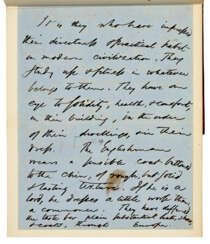 It is they who have impressed
their directness & practical habit
on modern civilization. They
study up aptness in whatever
belongs to them. They have an
eye to solidity, health, & comfort,
in their building, in the order
of their dwellings, in their
dress. The Englishman
wears a sensible coat buttoned
to the chin, of rough, but solid
& lasting texture. If he is a
lord, he dresses a little worse than
a commoner. They have diffused
the taste for plain substantial hats, shoes
& coats, through Europe